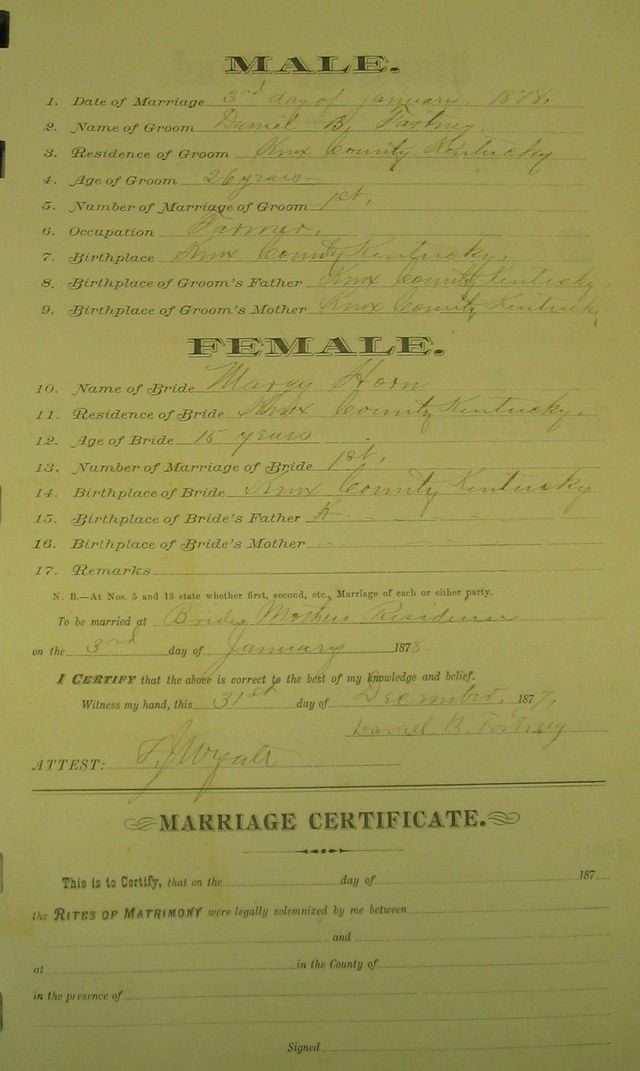 MALE.
1. Date of Marriage 3rd day of January. 1878,
2. Name of Groom Daniel B, Fortney
3. Residence of Groom Knox County Kentucky
4. Age of Groom 26 years
5. Number of Marriage of Groom 1st,
6. Occupation Farmer,
7. Birthplace Knox County Kentucky,
8. Birthplace of Groom's Father Knox County Kentucky,
9. Birthplace of Groom's Mother Knox County Kentucky,
FEMALE.
10. Name of Bride Margy Horn
11. Residence of Bride Knox County Kentucky,
12. Age of Bride 15 years
13. Number of Marriage of Bride 1st,
14. Birthplace of Bride Knox County Kentucky
15. Birthplace of Bride's Father
16. Birthplace of Bride's Mother
17. Remarks
N. B.—At Nos. 5 and 13 state whether first, second, etc., Marriage of each or either party.
To be married at Brides Mothers Residence
on the 3rd day of January 1878.
I CERTIFY that the above is correct to the best of my knowledge and belief.
Witness my hand, this 31st day of December, 1877,
Daniel B. Fortney
ATTEST: Wyatt
MARRIAGE CERTIFICATE.
This is to Certify, that on the day of 187
the RITES OF MATRIMONY were legally solemnized by me between
and
at in the County of
in the presence of
Signed